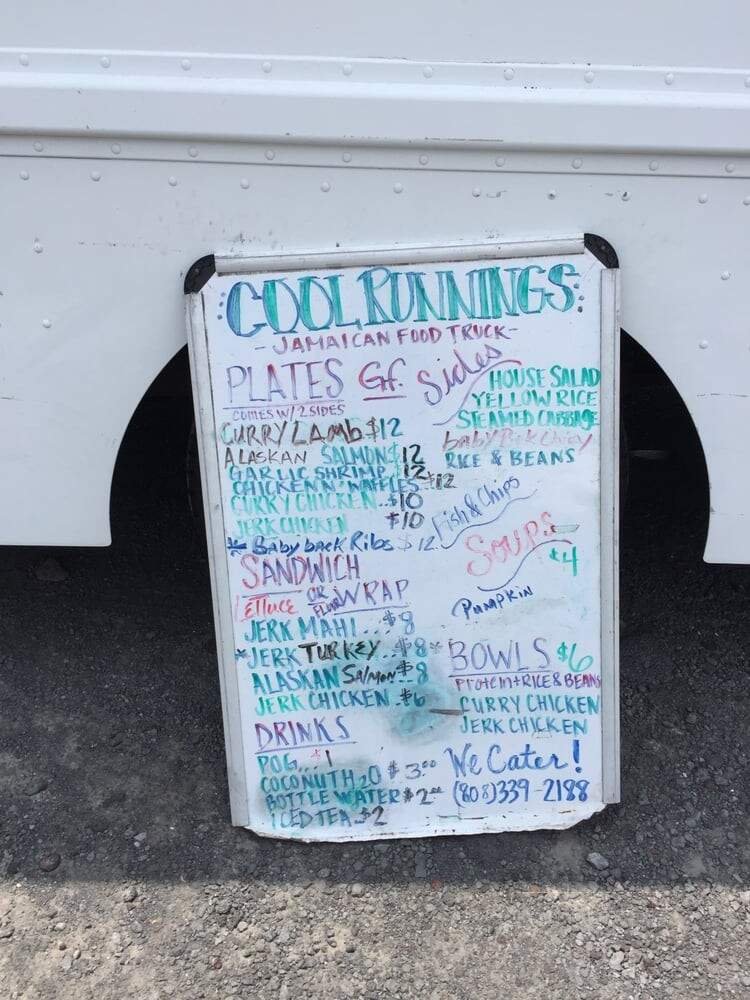 COOL RUNNINGS
- JAMAICAN FOOD TRUCK -
PLATES Gf.
COMES W/ 2 SIDES
CURRY LAMB $12
ALASKAN SALMON $12
GARLIC SHRIMP 12
CHICKEN N' WAFFLES $12
CURRY CHICKEN.. $10
JERK CHICKEN $10
* Baby back Ribs $12
Sides
HOUSE SALAD
YELLOW RICE
STEAMED CABBAGE
baby Bok Choy
RICE & BEANS
Fish & Chips
SOUPS
$4
PUMPKIN
SANDWICH
OR WRAP
LETTUCE
JERK MAHI...$8
*JERK TURKEY..$8*
ALASKAN SALMON $8
JERK CHICKEN.$6
BOWLS $6
PROTEIN+RICE & BEANS
CURRY CHICKEN
JERK CHICKEN
DRINKS
POG...$1
COCONUT H2O $3.00
BOTTLE WATER $2.00
ICED TEA.$2
We Cater!
(808)339-2188